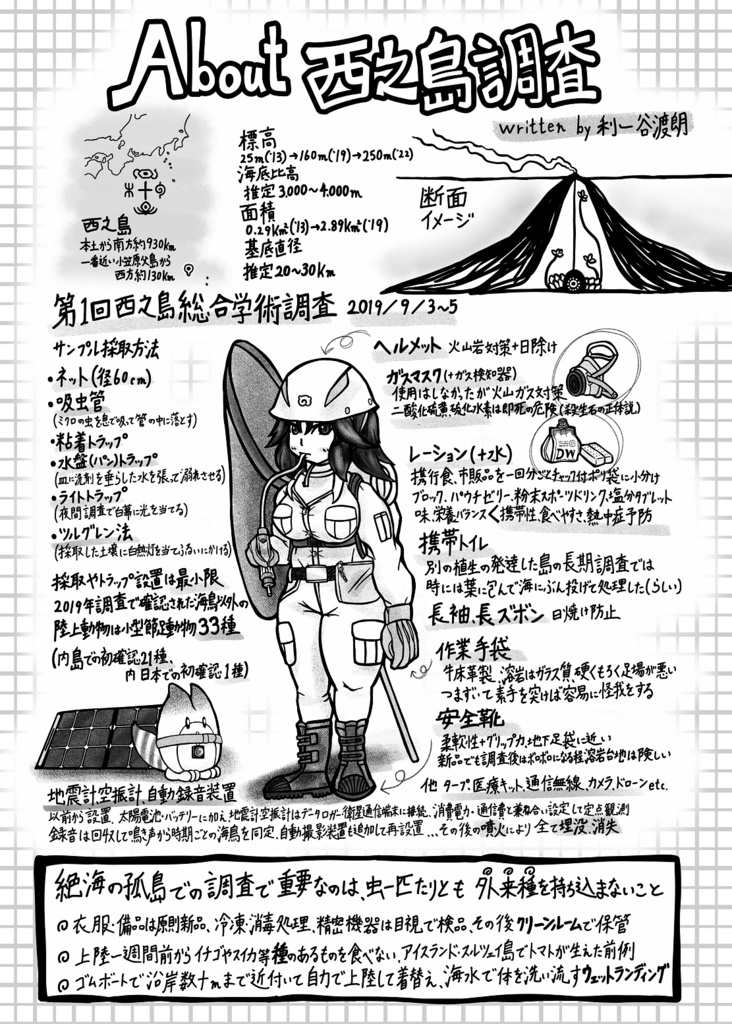 About 西之島調査
written by 利一谷渡朗
西之島
本土から南方約930km
一番近い小笠原父島から
西方約130km
標高
25m('13)→160m('19)→250m('22)
海底比高
推定3,000〜4,000m
面積
0.29km²('13)→2.89km²('19)
基底直径
推定20〜30km
断面
イメージ
第1回西之島総合学術調査 2019/9/3~5
サンプル採取方法
・ネット(径60cm)
・吸虫管
(ミクロの虫を息で吸って管の中に落とす)
・粘着トラップ
・水盤(パン)トラップ
(皿に洗剤を垂らした水を張って溺れさせる)
・ライトトラップ
(夜間調査で白幕に光を当てる)
・ツルグレン法
(採取した土壌に白熱灯を当てふるいにかける)
採取やトラップ設置は最小限
2019年調査で確認された海鳥以外の
陸上動物は小型節足動物33種
(内島での初確認21種、
内日本での初確認1種)
ヘルメット 火山岩対策+日除け
ガスマスク(+ガス検知器)
使用はしなかったが火山ガス対策
二酸化硫黄、硫化水素は即死の危険(殺生石の正体説)
DW
レーション(+水)
携行食、市販品を一回分ごとチャック付ポリ袋に小分け
ブロック、パウチゼリー、粉末スポーツドリンク、塩分タブレット
味、栄養バランスく携帯性、食べやすさ、熱中症予防
携帯トイレ
別の植生の発達した島の長期調査では
時には葉に包んで海にぶん投げて処理した(らしい)
長袖、長ズボン 日焼け防止
作業手袋
牛床革製、溶岩はガラス質、硬くもろく足場が悪い
つまずいて素手を突けば容易に怪我をする
安全靴
柔軟性+グリップ力、地下足袋に近い
新品でも調査後はボロボロになる程溶岩台地は険しい
他 タープ、医療キット、通信無線、カメラ、ドローンetc.
地震計、空振計、自動録音装置
以前から設置、太陽電池・バッテリーに加え、地震計空振計はデータロガー衛星通信端末に接続、消費電力・通信費と兼ね合い設定して定点観測
録音は回収して鳴き声から時期ごとの海鳥を同定、自動撮影装置も追加して再設置…その後の噴火により全て埋没、消失
絶海の孤島での調査で重要なのは、虫一匹たりとも外来種を持ち込まないこと
◎衣服・備品は原則新品、冷凍・消毒処理、精密機器は目視で検品、その後クリーンルームで保管
◎上陸一週間前からイチゴやスイカ等種のあるものを食べない、アイスランド・スルツェイ島でトマトが生えた前例
◎ゴムボートで沿岸数十mまで近付いて自力で上陸して着替え、海水で体を洗い流すウェットランディング